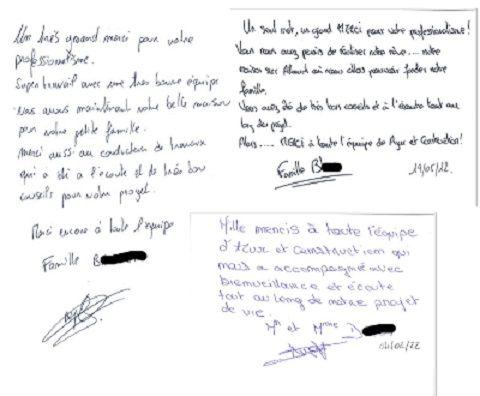 Un très grand merci pour votre
professionalisme.
Super travail avec une très bonne équipe
Nous avons maintenant notre belle maison
pour notre petite famille.
Merci aussi au conducteur de travaux
qui a été à l'écoute et de très bon
conseils pour notre projet.
Merci encore à toute l'équipe
Famille B
Un seul mot, un grand Merci pour votre professionalisme!
Vous nous avez permis de réaliser notre rêve.... notre
maison sur où nous allons pouvoir fonder notre
famille.
Vous avez été de très bons conseils et à l'écoute tout au
long du projet.
Alors.... MERCI à toute l'équipe de et Construction!
Famille B
19/05/22.
Mille mercis à toute l'équipe
d' et construction qui
nous a accompagné avec
bienveillance et écoute
tout au long de notre projet
de vie.
Mr et Mme
04/02/22